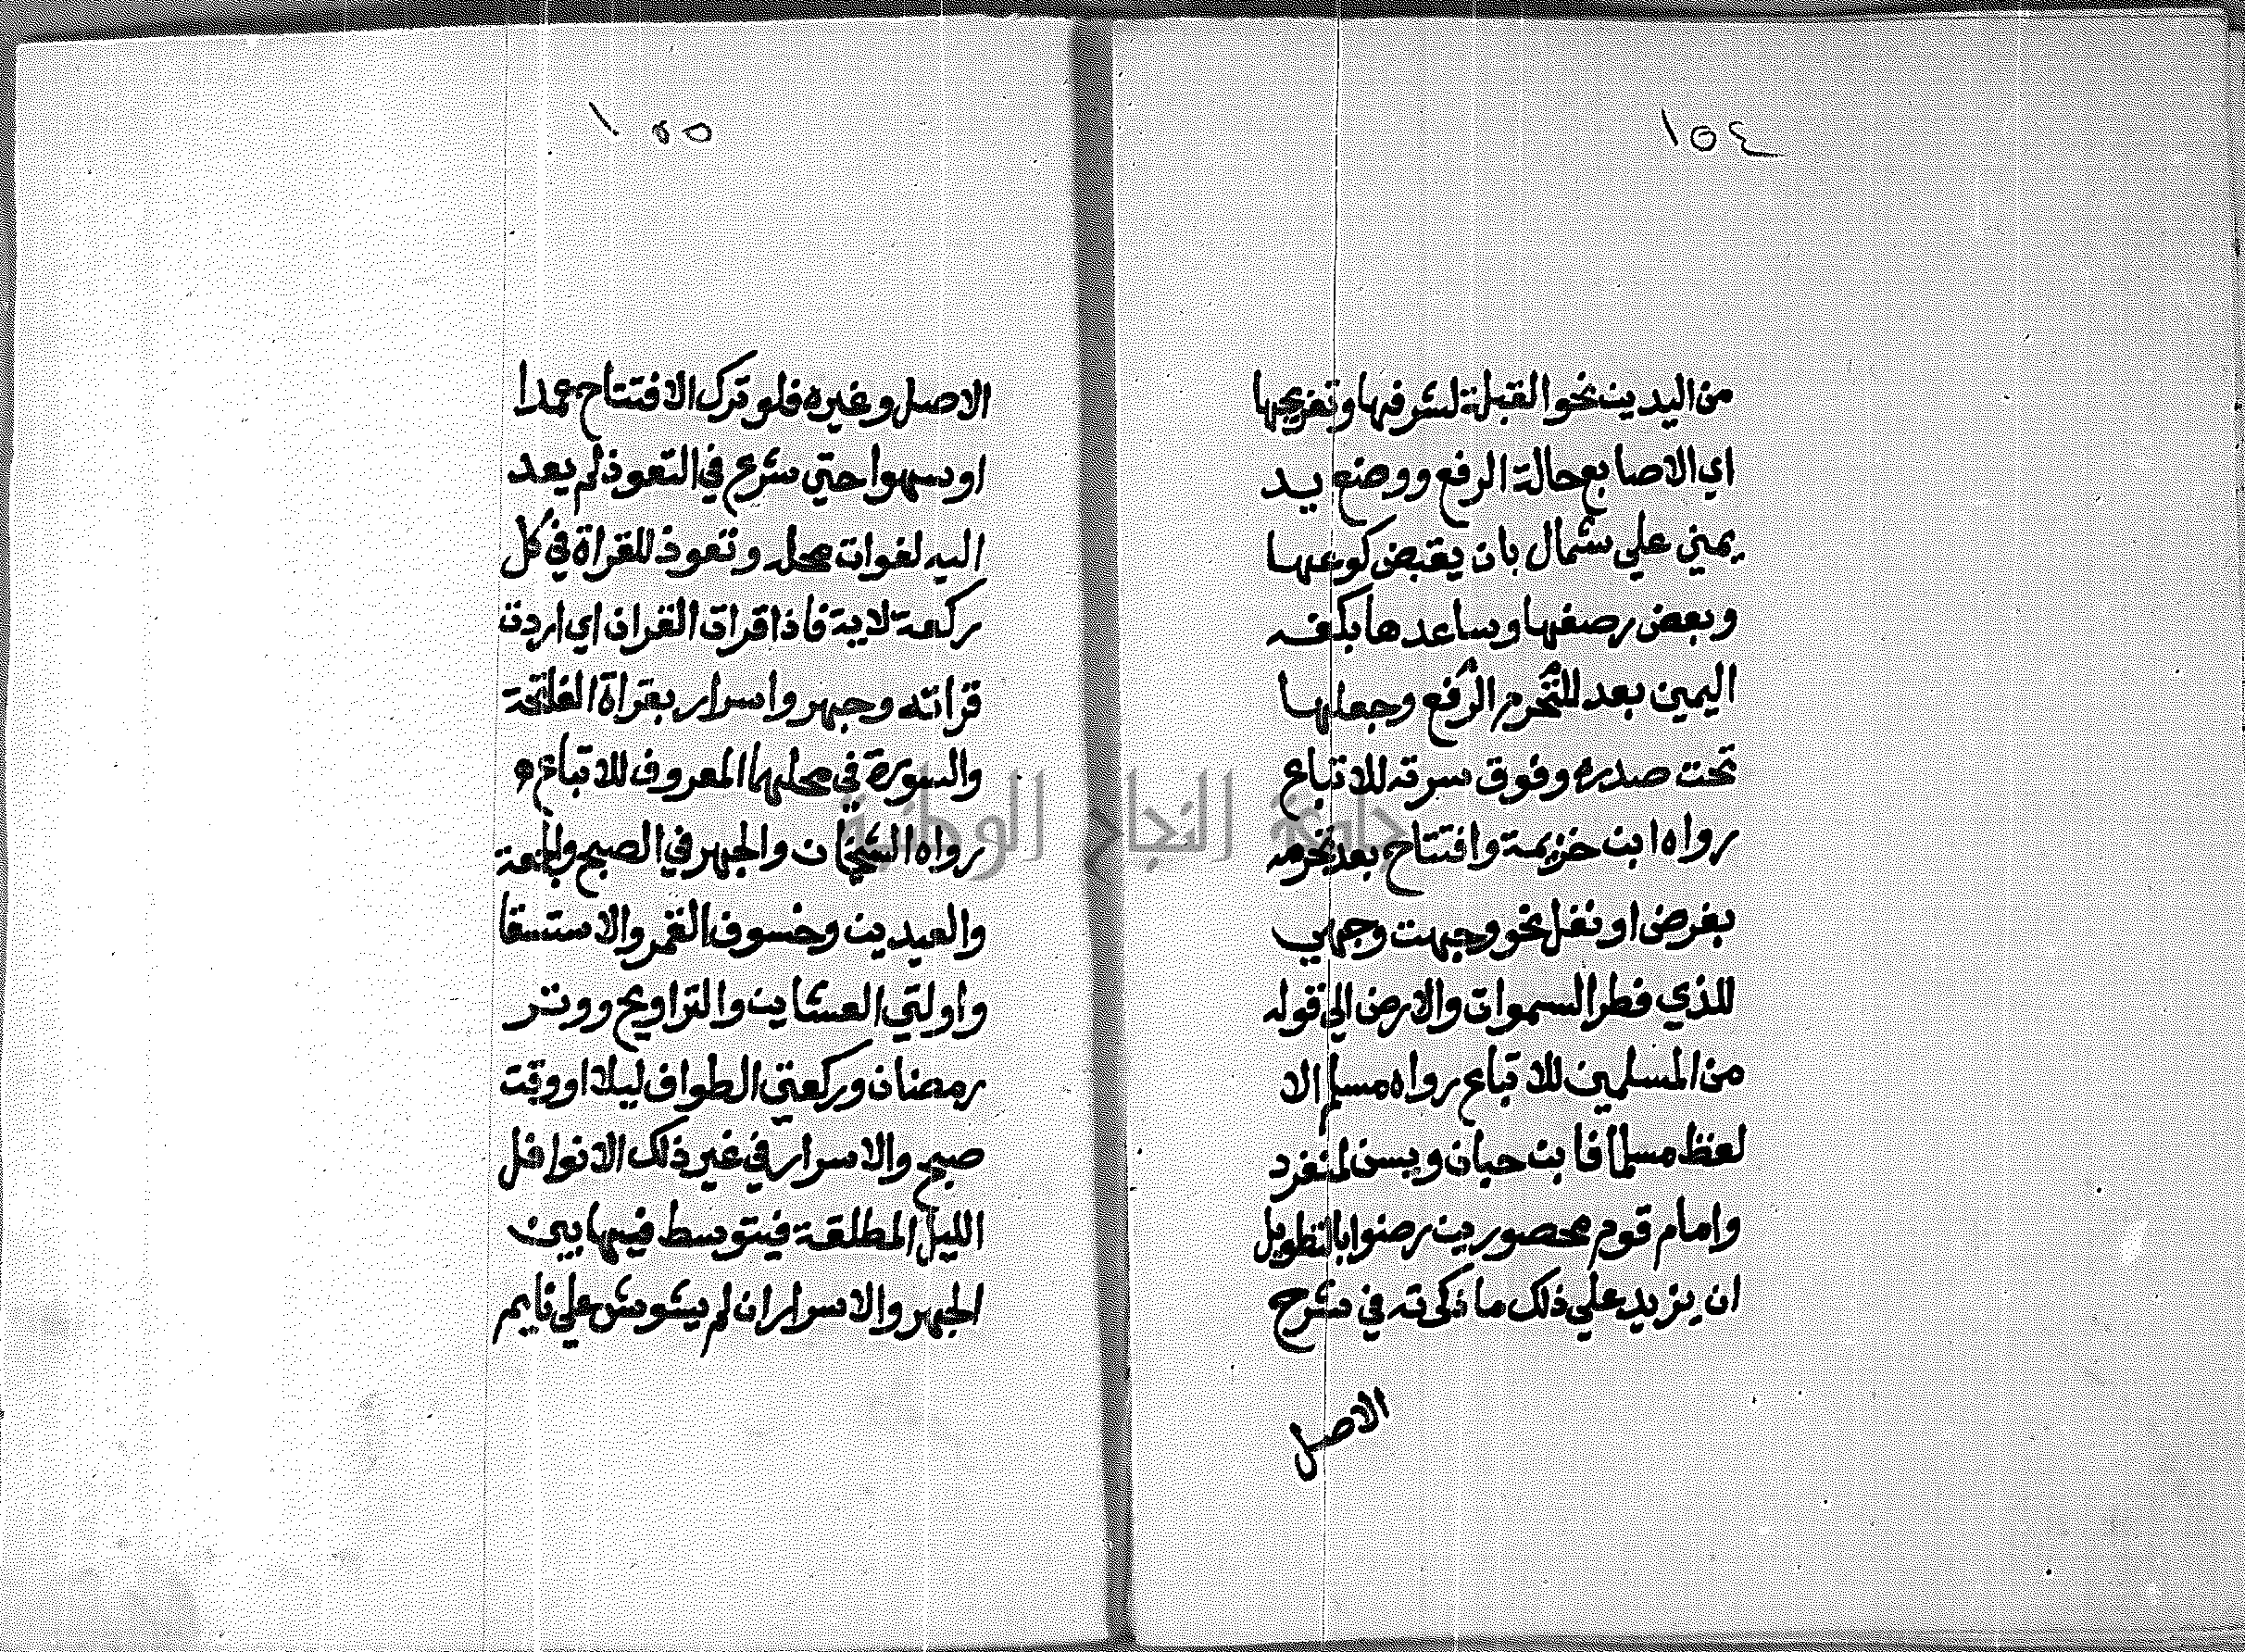 ١٥٤
من اليدين نحو القبلة لشرفها وتفريجها
اي الاصابع حالة الرفع ووضع يد
يمني علي شمال بان يقبض كوعها
وبعض رصغها وساعدها بكفه
اليمين بعد للتحرم الرفع وجعلها
تحت صدره وفوق سرته للاتباع
رواه ابن خزيمة وافتتاح بعد تحرمه
بفرض او نفل نحو وجهت وجهي
للذي فطر السموات والارض الي قوله
من المسلمين للاتباع رواه مسلم الا
لفظ مسلما فابن حبان ويسن لمنفرد
وامام قوم محصورين رضوا بالتطويل
ان يزيد علي ذلك ما ذكرته في شرح
الاصل
١٥٥
الاصل وغيره فلو ترك الافتتاح عمدا
او سهوا حتي شرع في التعوذ لم يعد
اليه لفوات محله وتعوذ للقراة في كل
ركعة لاية فاذا قرات القران اي اردت
قراته وجهر واسرار بقراة الفاتحة
والسورة في محلهما المعروف للاتباع
رواه الشيخان والجهر في الصبح والجمعة
والعيدين وخسوف القمر والاستسقا
واولتي العشاين والتراويح ووتر
رمضان وركعتي الطواف ليلا او وقت
صبح والاسرار في غير ذلك الا نوافل
الليل المطلقة فيتوسط فيها بين
الجهر والاسرار ان لم يشوش علي نايم
جامعة النجاح الوطنية